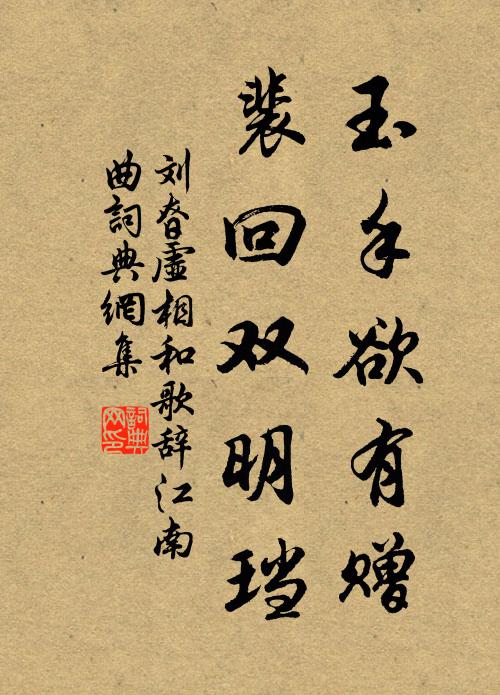 玉手欲有赠
裴回双明珰
刘昚虚相和歌辞江南
曲詞典網集
詞典
网印